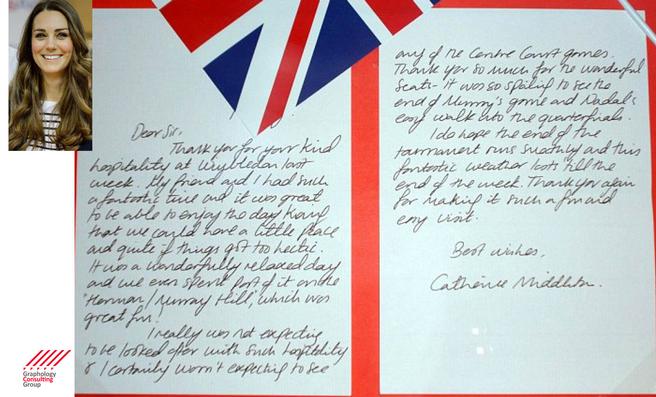 Dear Sir,
Thank you for your kind
hospitality at Wimbledon last
week. My friend and I had such
a fantastic time and it was great
to be able to enjoy the day knowing
that we could have a little peace
and quite if things got too hectic.
It was a wonderfully relaxed day
and we even spent part of it on the
"Henman / Murray Hill", which was
great fun!
I really was not expecting
to be looked after with such hospitality
& I certainly wasn't expecting to see
any of the Centre Court games.
Thank you so much for the wonderful
seats - it was so spoiling to see the
end of Murray's game and Nadal's
easy walk into the quarterfinals.
I do hope the end of the
tournament runs smoothly and this
fantastic weather lasts till the
end of the week. Thank you again
for making it such a fun and
easy visit.
Best wishes,
Catherine Middleton.
Graphology
Consulting
Group